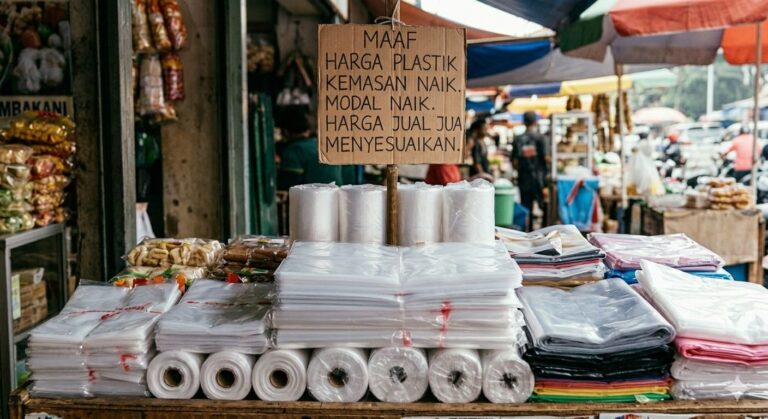 MAAF
HARGA PLASTIK
KEMASAN NAIK.
MODAL NAIK.
HARGA JUAL JUA
MENYESUAIKAN.
MBAKANI